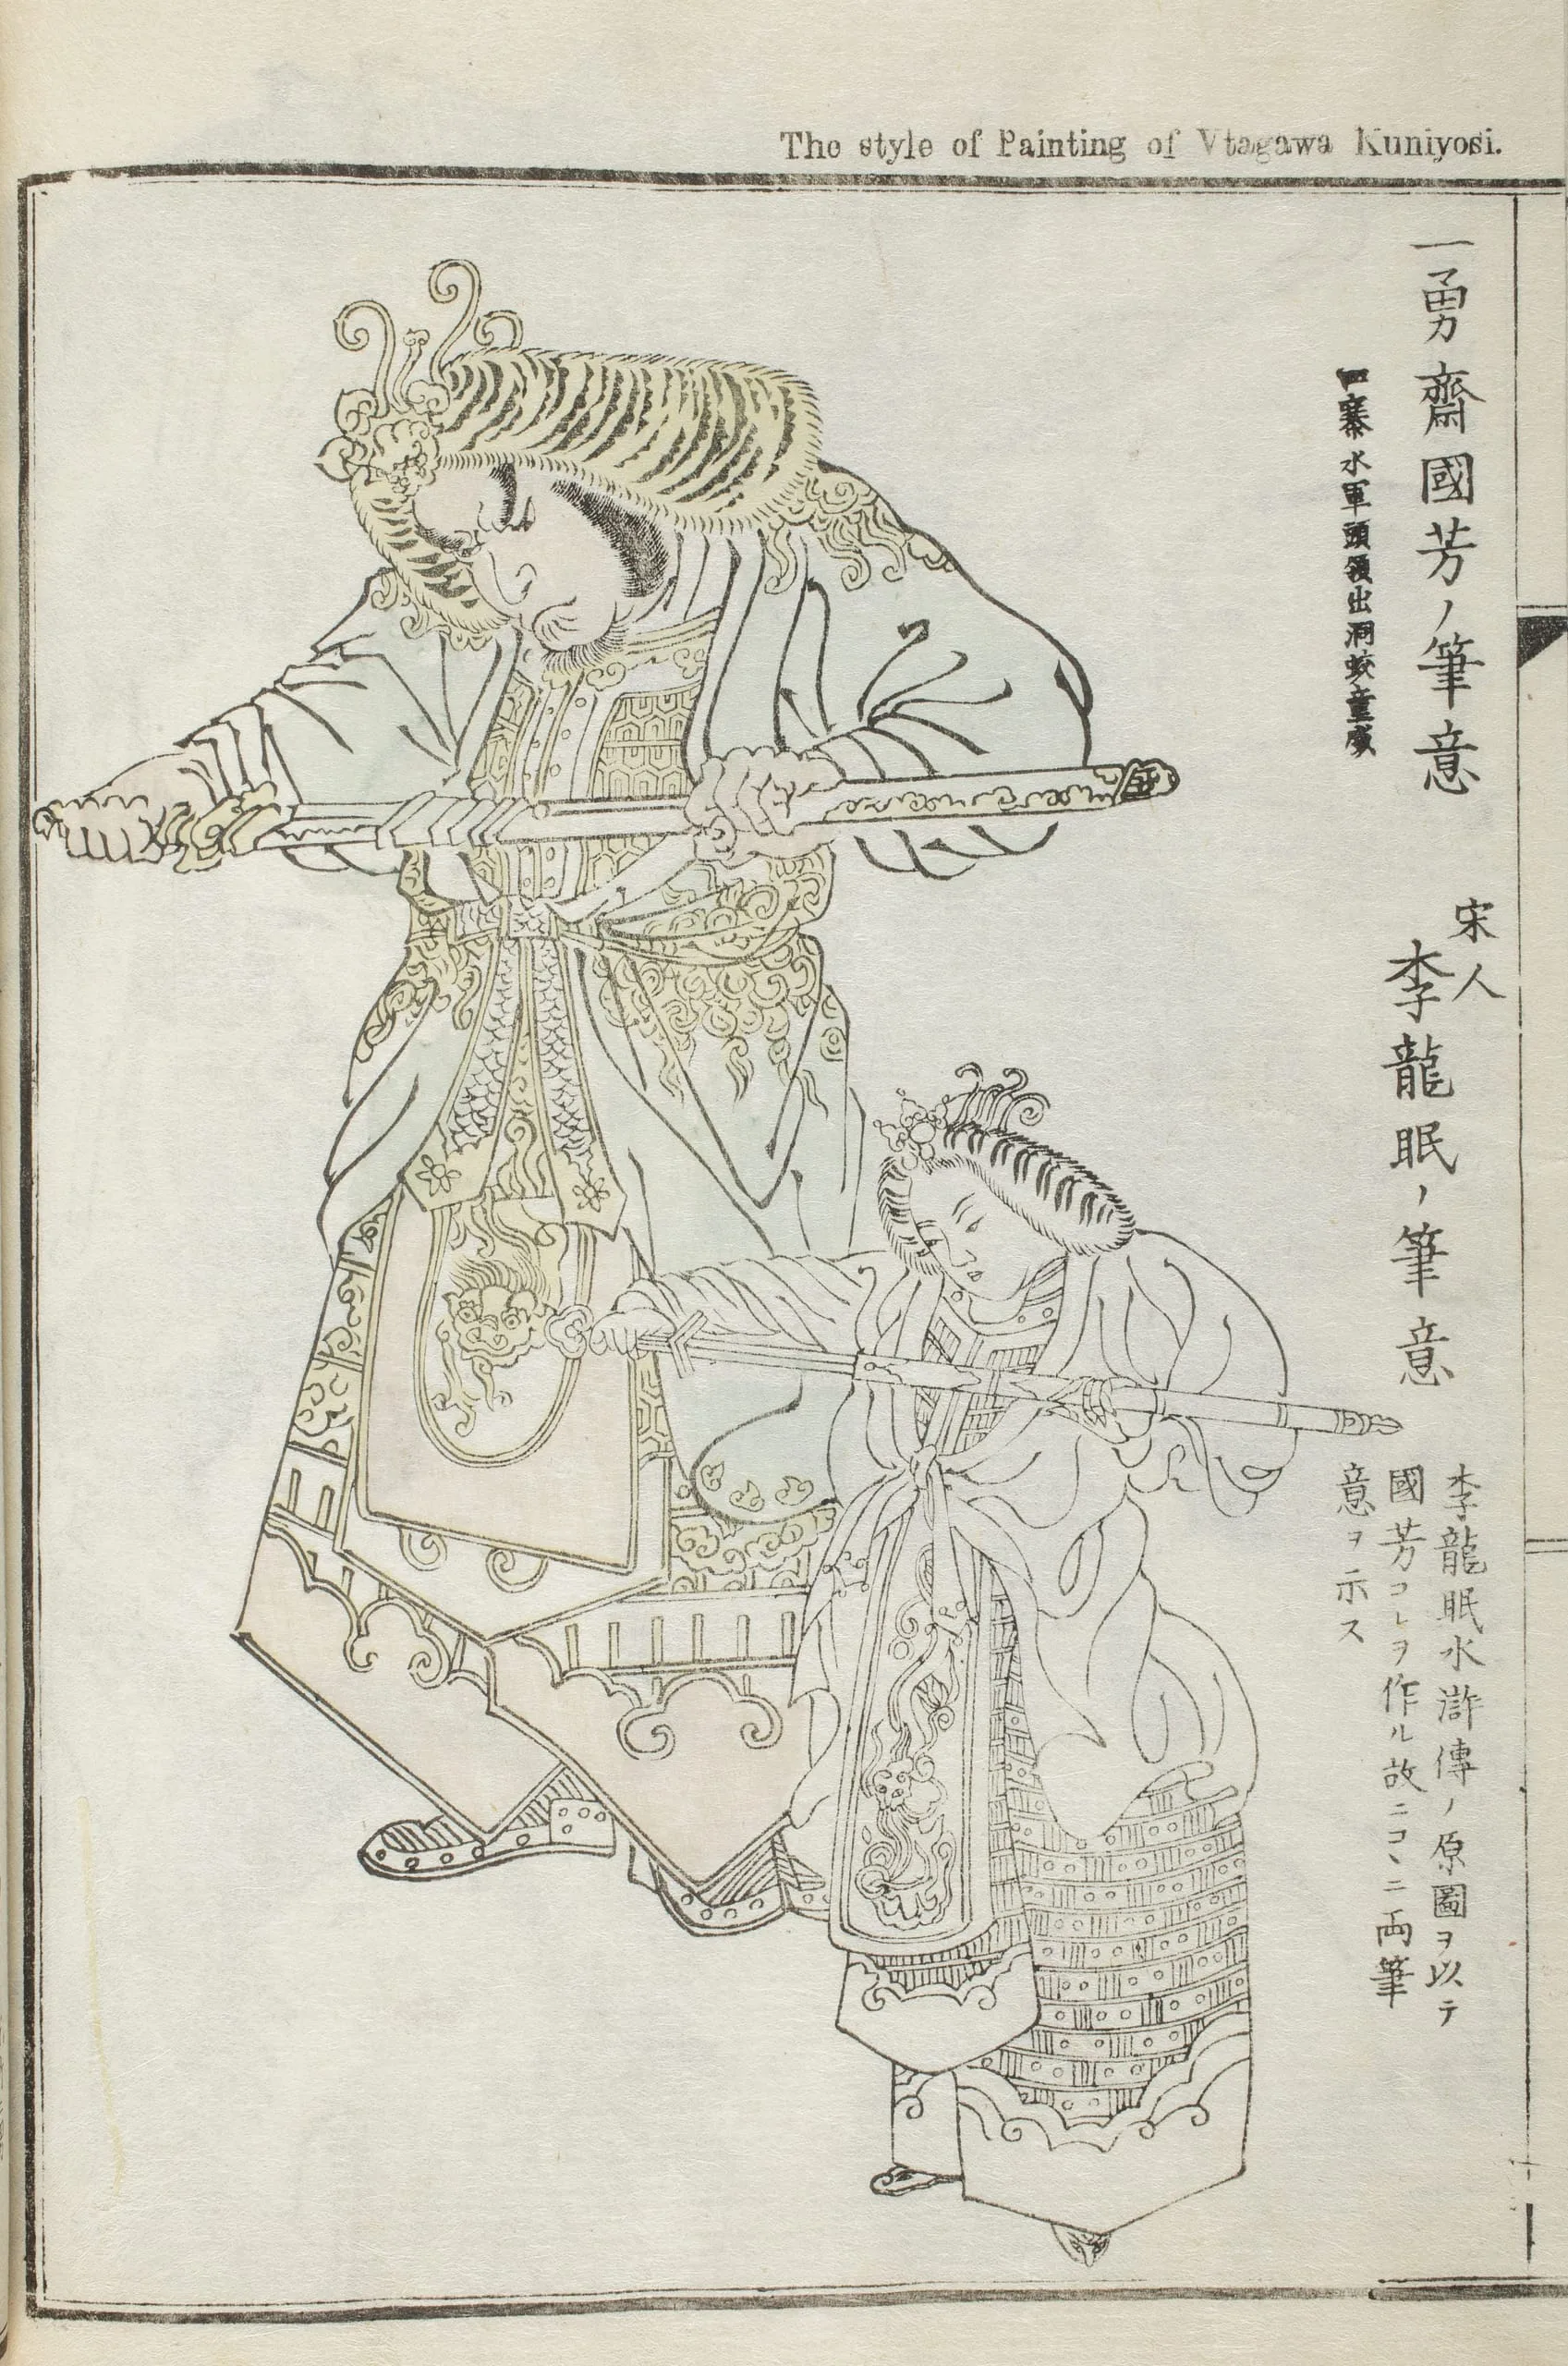 The style of Painting of Vtagawa Kuniyosi.
一勇齋國芳ノ筆意
寨水軍頭領出洞蛟童威
宋人
李龍眠ノ筆意
李龍眠水滸傳ノ原圖ヲ以テ
國芳コレヲ作ル故ニコヽニ両筆
意ヲ示ス